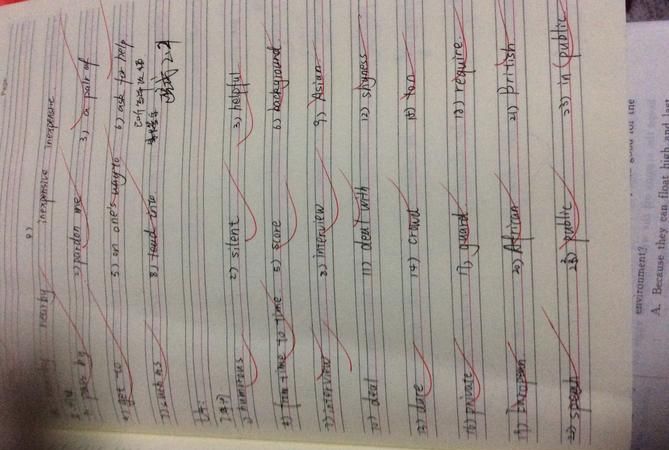 nearby nearby 8) inexpensive inexpensive
1) pass by 2) pardon me 3) a pair of
4) get to 5) on one's way to 6) ask for help
7) such as 8) lead into
1) humorous 2) silent 3) helpful
4) from time to time 5) score 6) background
7) interview 8) interview 9) Asian
10) deal 11) dealt with 12) shyness
13) dare 14) crowd 15) ton
16) private 17) guard 18) require
19) European 20) African 21) British
22) speech 23) public 23) in public
environment?
A. Because they can first high and